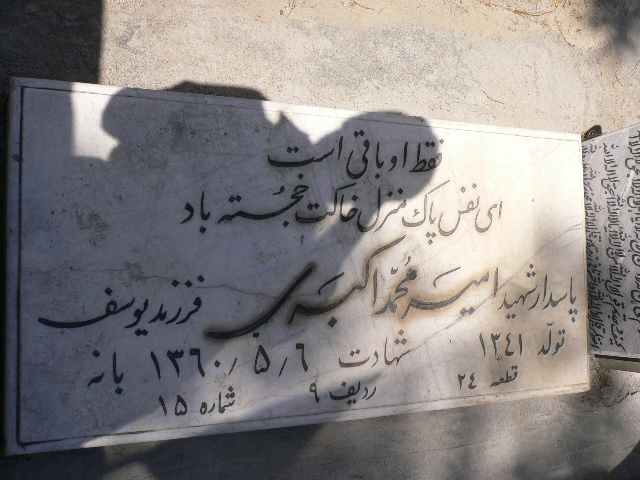 فقط او باقی است
ای نفس پاک منزل خاکت خجسته باد
پاسدار شهید امیر محمد اکبری فرزند یوسف
تولد ۱۳۴۱ شهادت ۱۳۶۰/۵/۶ بانه
قطعه ۲۴ ردیف ۹ شماره ۱۵